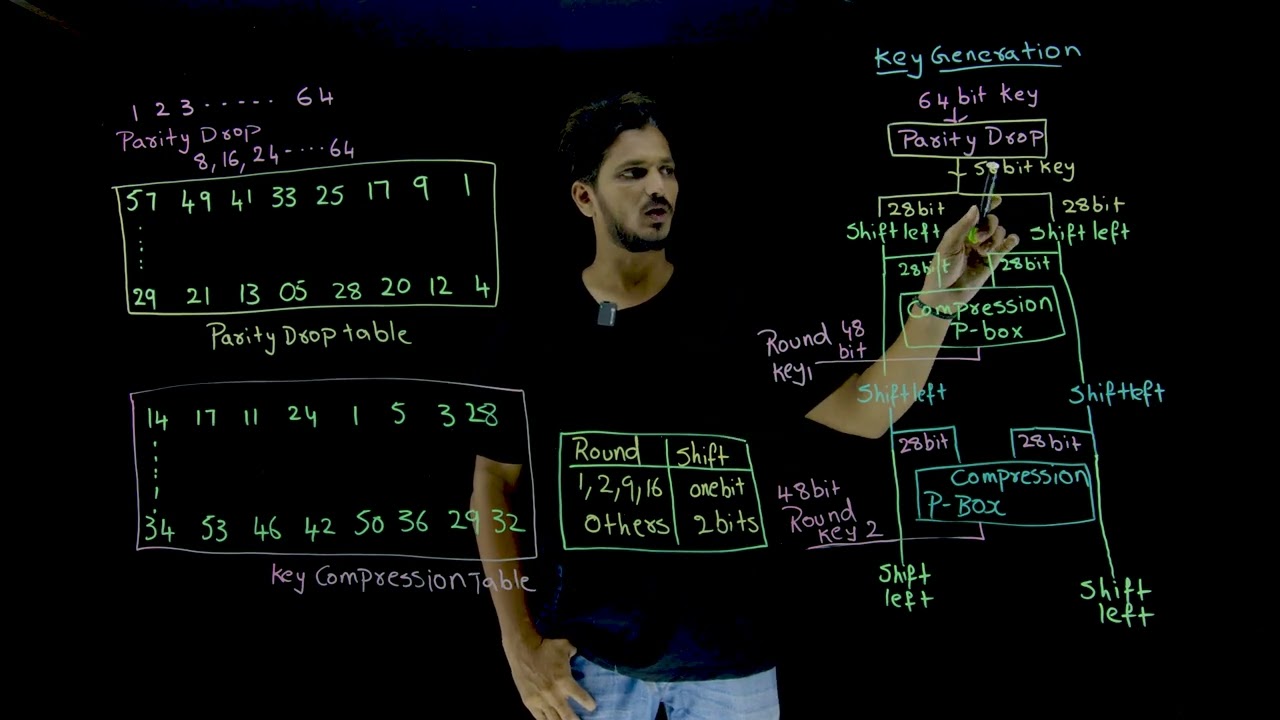 1 2 3 ...... 64
Parity Drop
8, 16, 24 .... 64
57 49 41 33 25 17 9 1
29 21 13 05 28 20 12 4
Parity Drop table
14 17 11 24 1 5 3 28
34 53 46 42 50 36 29 32
Key Compression Table
Round Shift
1, 2, 9, 16 one bit
Others 2 bits
Key Generation
64 bit key
Parity Drop
bit key
28 bit 28 bit
Shift left Shift left
28 bit 28 bit
Compression
P-box
Round 48
bit
key1
Shift left Shift left
28 bit 28 bit
Compression
P-Box
48 bit
Round
key 2
Shift
left
Shift
left